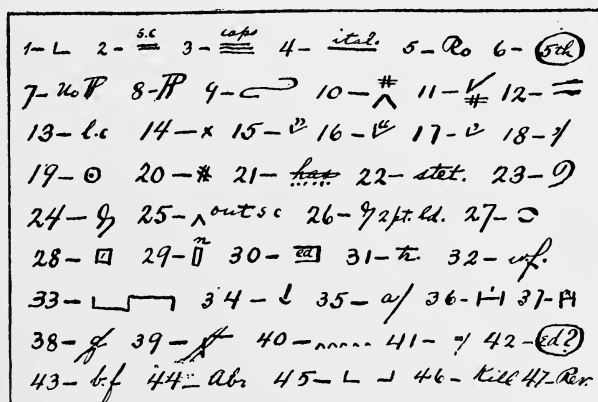 1- L 2- s.c 3- caps 4- ital. 5- Ro 6- 5th
7- no ¶ 8- ¶ 9- 10- # ^ 11- √ # 12- =
13- l.c 14- x 15- " 16- " 17- ' 18- :/
19- ⊙ 20- # 21- has 22- stet. 23- 9
24- 25- ^ out s c 26- 2pt. ld. 27-
28- □ 29- n 30- ed 31- tr. 32- w.f.
33- 34- 35- a/ 36- 37-
38- 39- 40- 41- =/ 42- ed?
43- b.f 44- Abr 45- L ⅃ 46- Kill 47- Rev.